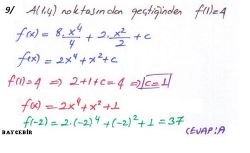 9/ A(1,4) noktasından geçtiğinden f(1)=4
f(x) = 8.x⁴/4 + 2.x²/2 + c
f(x) = 2x⁴+x²+c
f(1)=4 ⇒ 2+1+c=4 ⇒ c=1
f(x) = 2x⁴+x²+1
f(-2) = 2.(-2)⁴+(-2)²+1 = 37
BAYCEBİR
CEVAP:A